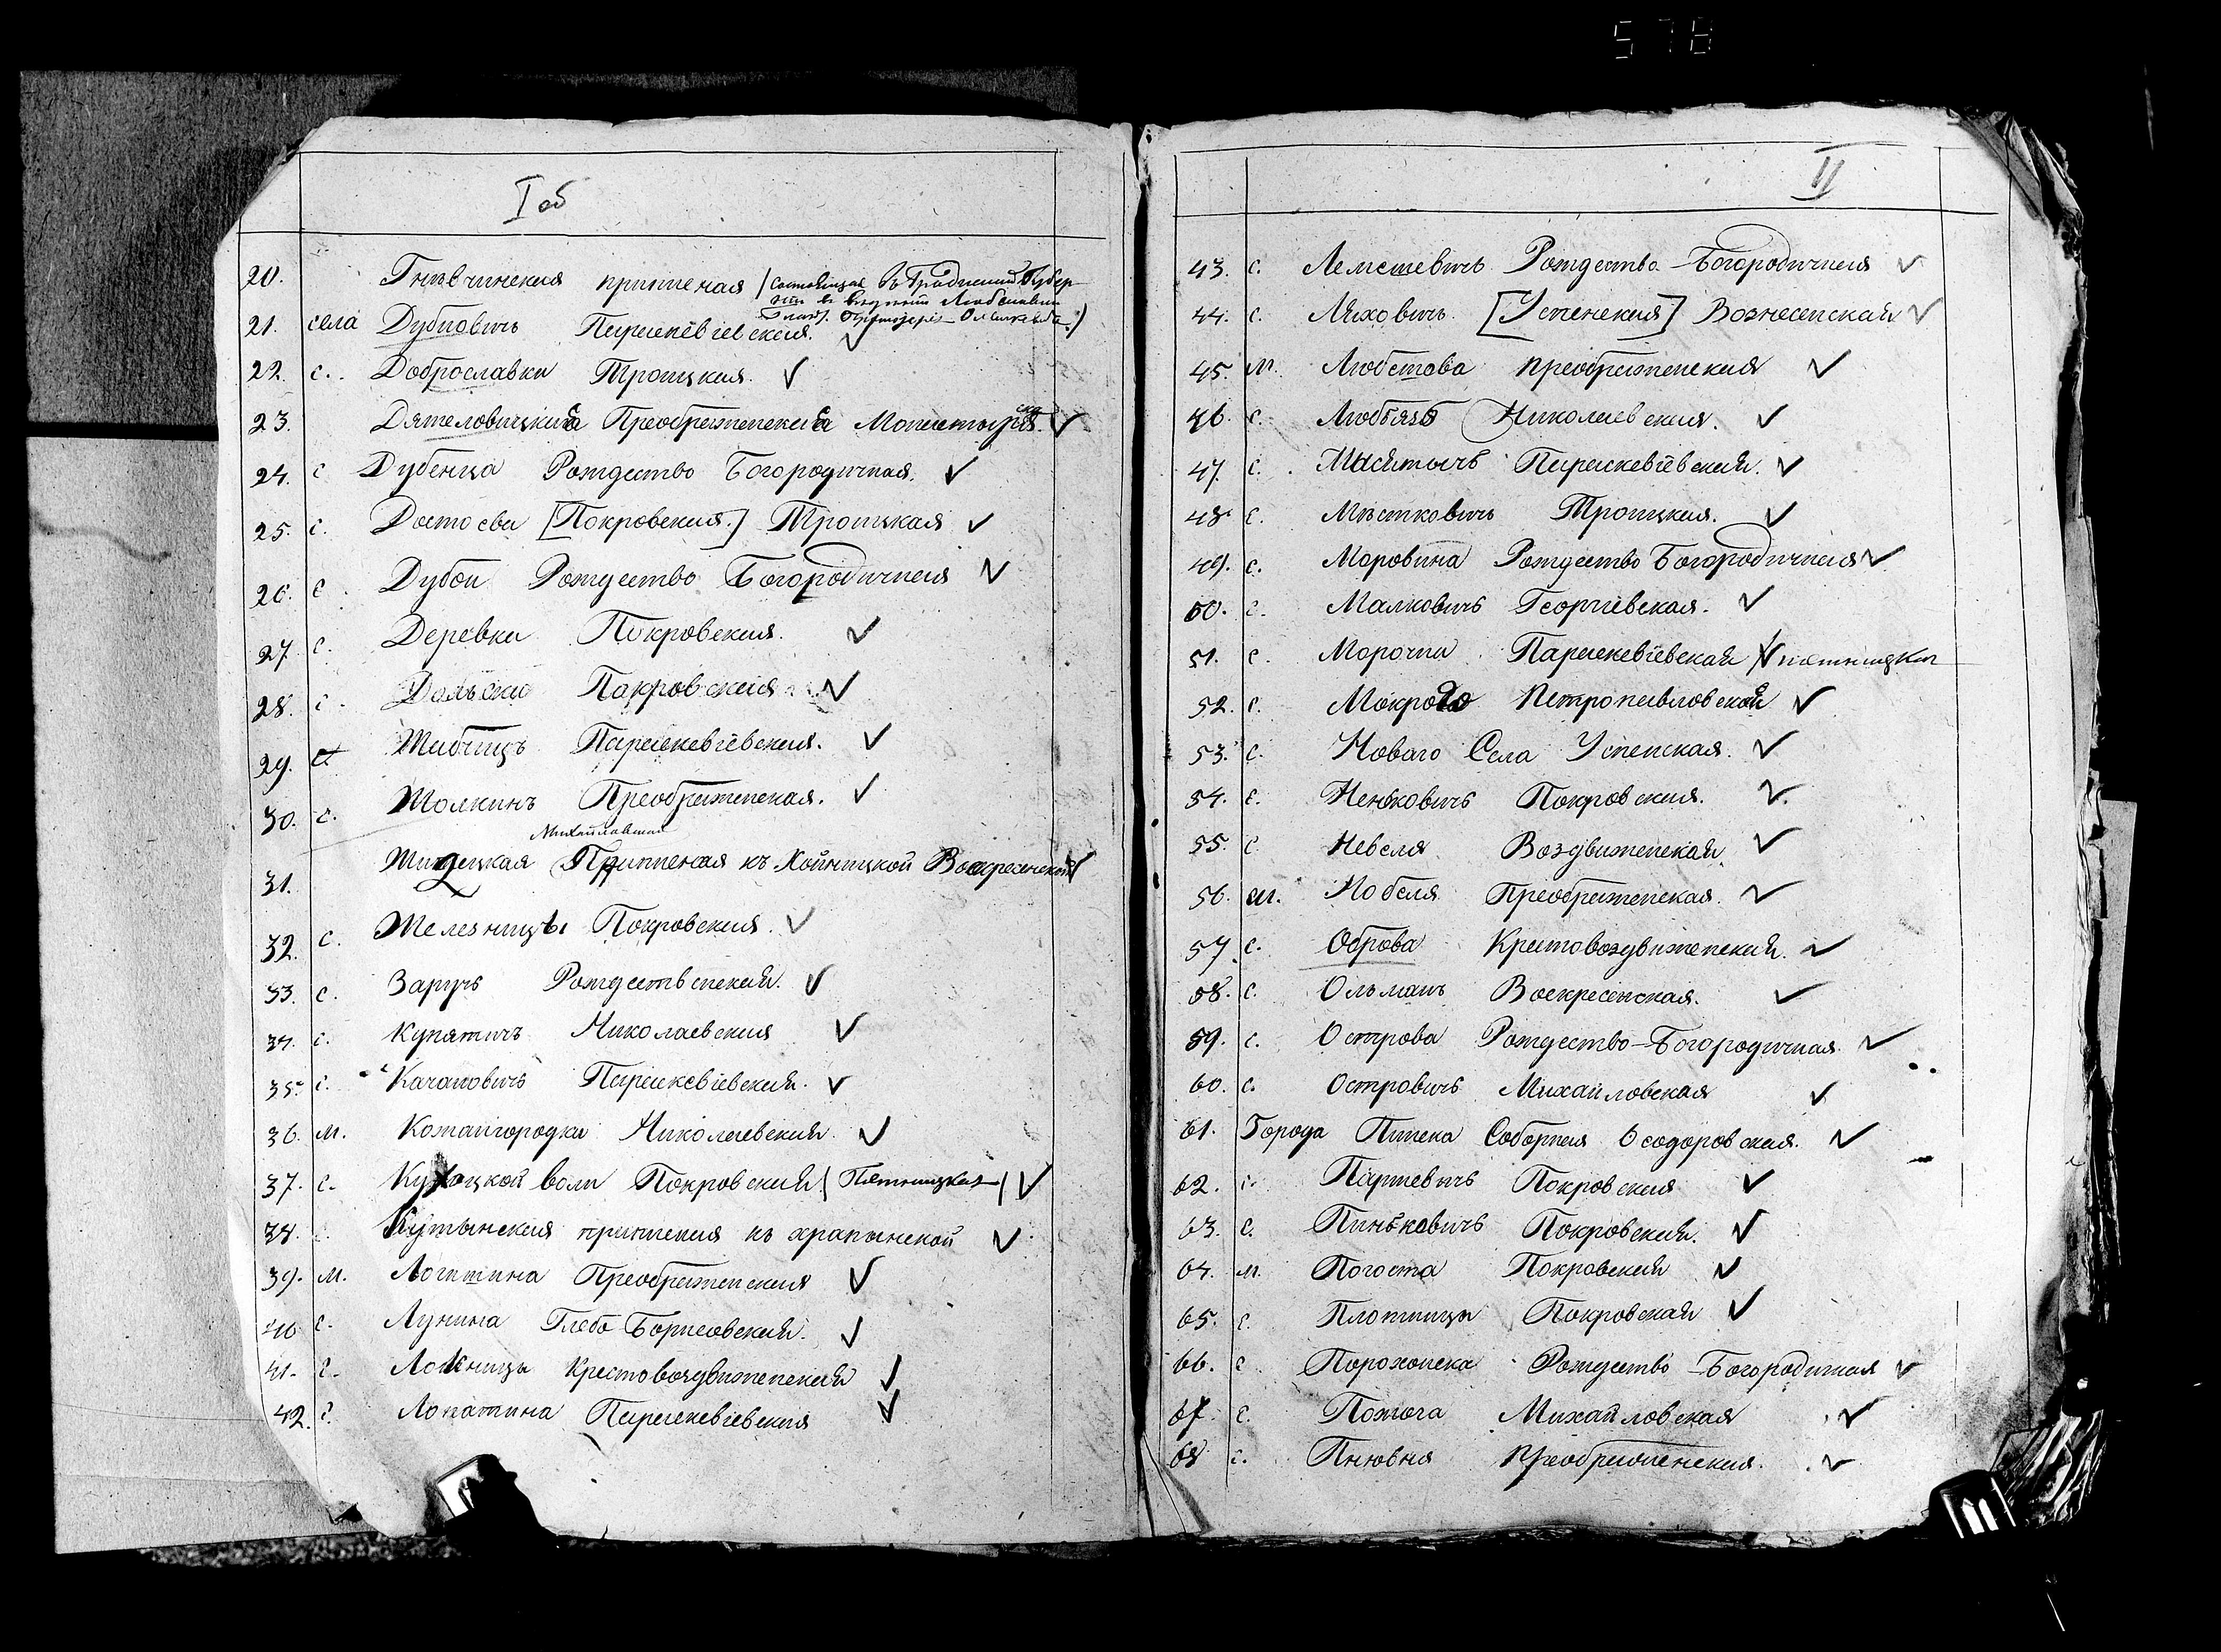 578
I об
20. Гнѣвчинская приписная (состоящая въ Гродненской Губер-
21. села Дубновичъ Параскевіевская. ✓
22. с. Доброславки Троицкая. ✓
23. Дятеловицкаго Преображенскаго Монастыря. ✓
24. с Дубенца Рождество Богородичная. ✓
25. с. Достоева [Покровская.] Троицкая ✓
26. с Дубои Рождество Богородичная ✓
27. с. Деревка Покровская. ✓
28. с. Дольска Покровская ✓
29. с. Жабчицъ Параскевіевская. ✓
30. с. Жолкинъ Преображенская. ✓
Михайловская
31. Жидецкая Приписная къ Хойницкой Воскресенской ✓
32. с. Железницы Покровская. ✓
33. с. Заручъ Рождественская. ✓
34. с. Купятичъ Николаевская ✓
35. с. Качановичъ Параскевіевская. ✓
36. м. Кожангородка Николаевская. ✓
37. с. Кухоцкой воли Покровская (Пятницкая) ✓
38. с. Кутынская приписная къ храпынской ✓
39. м. Логишина Преображенская ✓
40 с. Лунина Глебо Борисовская. ✓
41. с. Ложницы Крестовоздвиженская ✓
42. с. Лопатина Параскевіевская ✓
II
43. с. Лемешевичъ Рождество-Богородичная ✓
44. с. Ляховичъ. [Успенская] Вознесенская ✓
45. м. Любешова Преображенская ✓
46. с. Любязь Николаевская. ✓
47. с. Мысятычъ Параскевіевская. ✓
48 с. Местковичъ Троицкая. ✓
49. с. Моровина Рождество Богородичная ✓
50. с. Малковичъ Георгіевская. ✓
51. с. Морочна Параскевіевская ✓ пятницкая
52. с. Мокрова Петропавловская ✓
53. с. Новаго Села Успенская. ✓
54. с. Неньковичъ Покровская. ✓
55 с Невеля Воздвиженская ✓
56. м. Нобеля Преображенская. ✓
57 с. Оброва Крестовоздвиженская. ✓
58. с. Ольманъ Воскресенская. ✓
59. с. Острова Рождество-Богородичная. ✓
60. с. Островичъ Михайловская ✓
61. Города Пинска Соборная Ѳеодоровская. ✓
62. с. Паршевичъ Покровская ✓
63. с. Пиньковичъ Покровская. ✓
64. м. Погоста Покровская ✓
65. с. Плотницы Покровская ✓
66. с Порохонска Рождество-Богородичная ✓
67. с. Пожога Михайловская ✓
68 с. Пнювня Преображенская. ✓